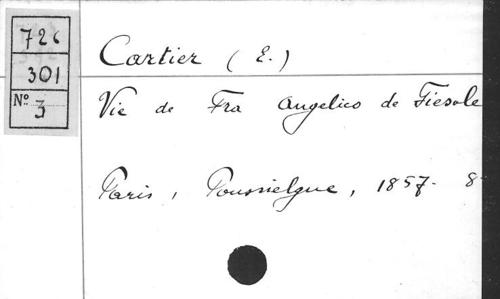 726
301
Nº 3
Cartier (E.)
Vie de Fra Angelico de Fiesole
Paris, Poussielgue, 1857. 8